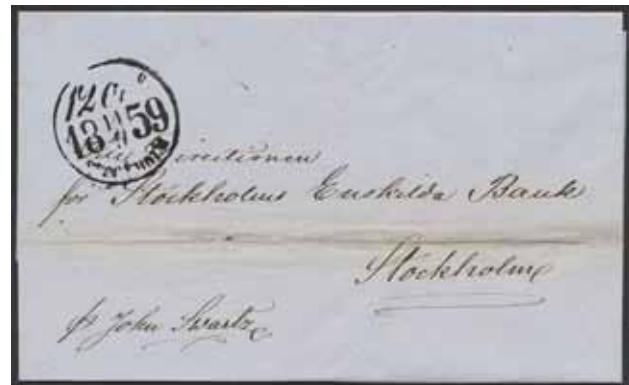 12 Ö
18 59
Directionen
för Stockholms Enskilda Bank
Stockholm
pr John Swartz